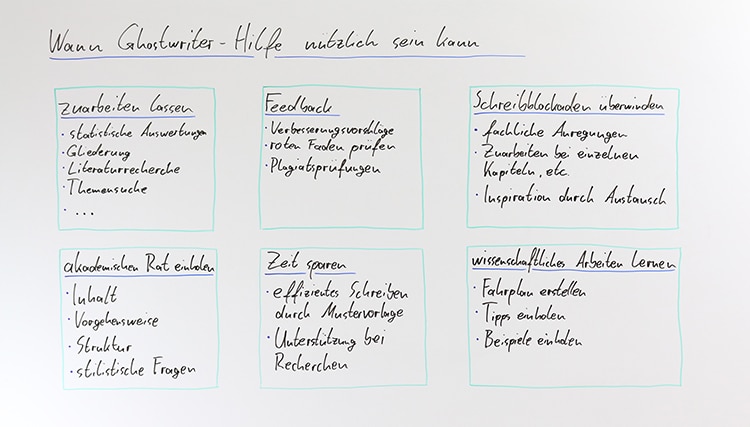 Wann Ghostwriter-Hilfe nützlich sein kann
zuarbeiten lassen
· statistische Auswertungen
· Gliederung
· Literaturrecherche
· Themensuche
· ...
Feedback
· Verbesserungsvorschläge
· roten Faden prüfen
· Plagiatsprüfungen
Schreibblockaden überwinden
· fachliche Anregungen
· Zuarbeiten bei einzelnen
Kapiteln, etc.
· Inspiration durch Austausch
akademischen Rat einholen
· Inhalt
· Vorgehensweise
· Struktur
· stilistische Fragen
Zeit sparen
· effizientes Schreiben
durch Mustervorlage
· Unterstützung bei
Recherchen
wissenschaftliches Arbeiten lernen
· Fahrplan erstellen
· Tipps einholen
· Beispiele einholen